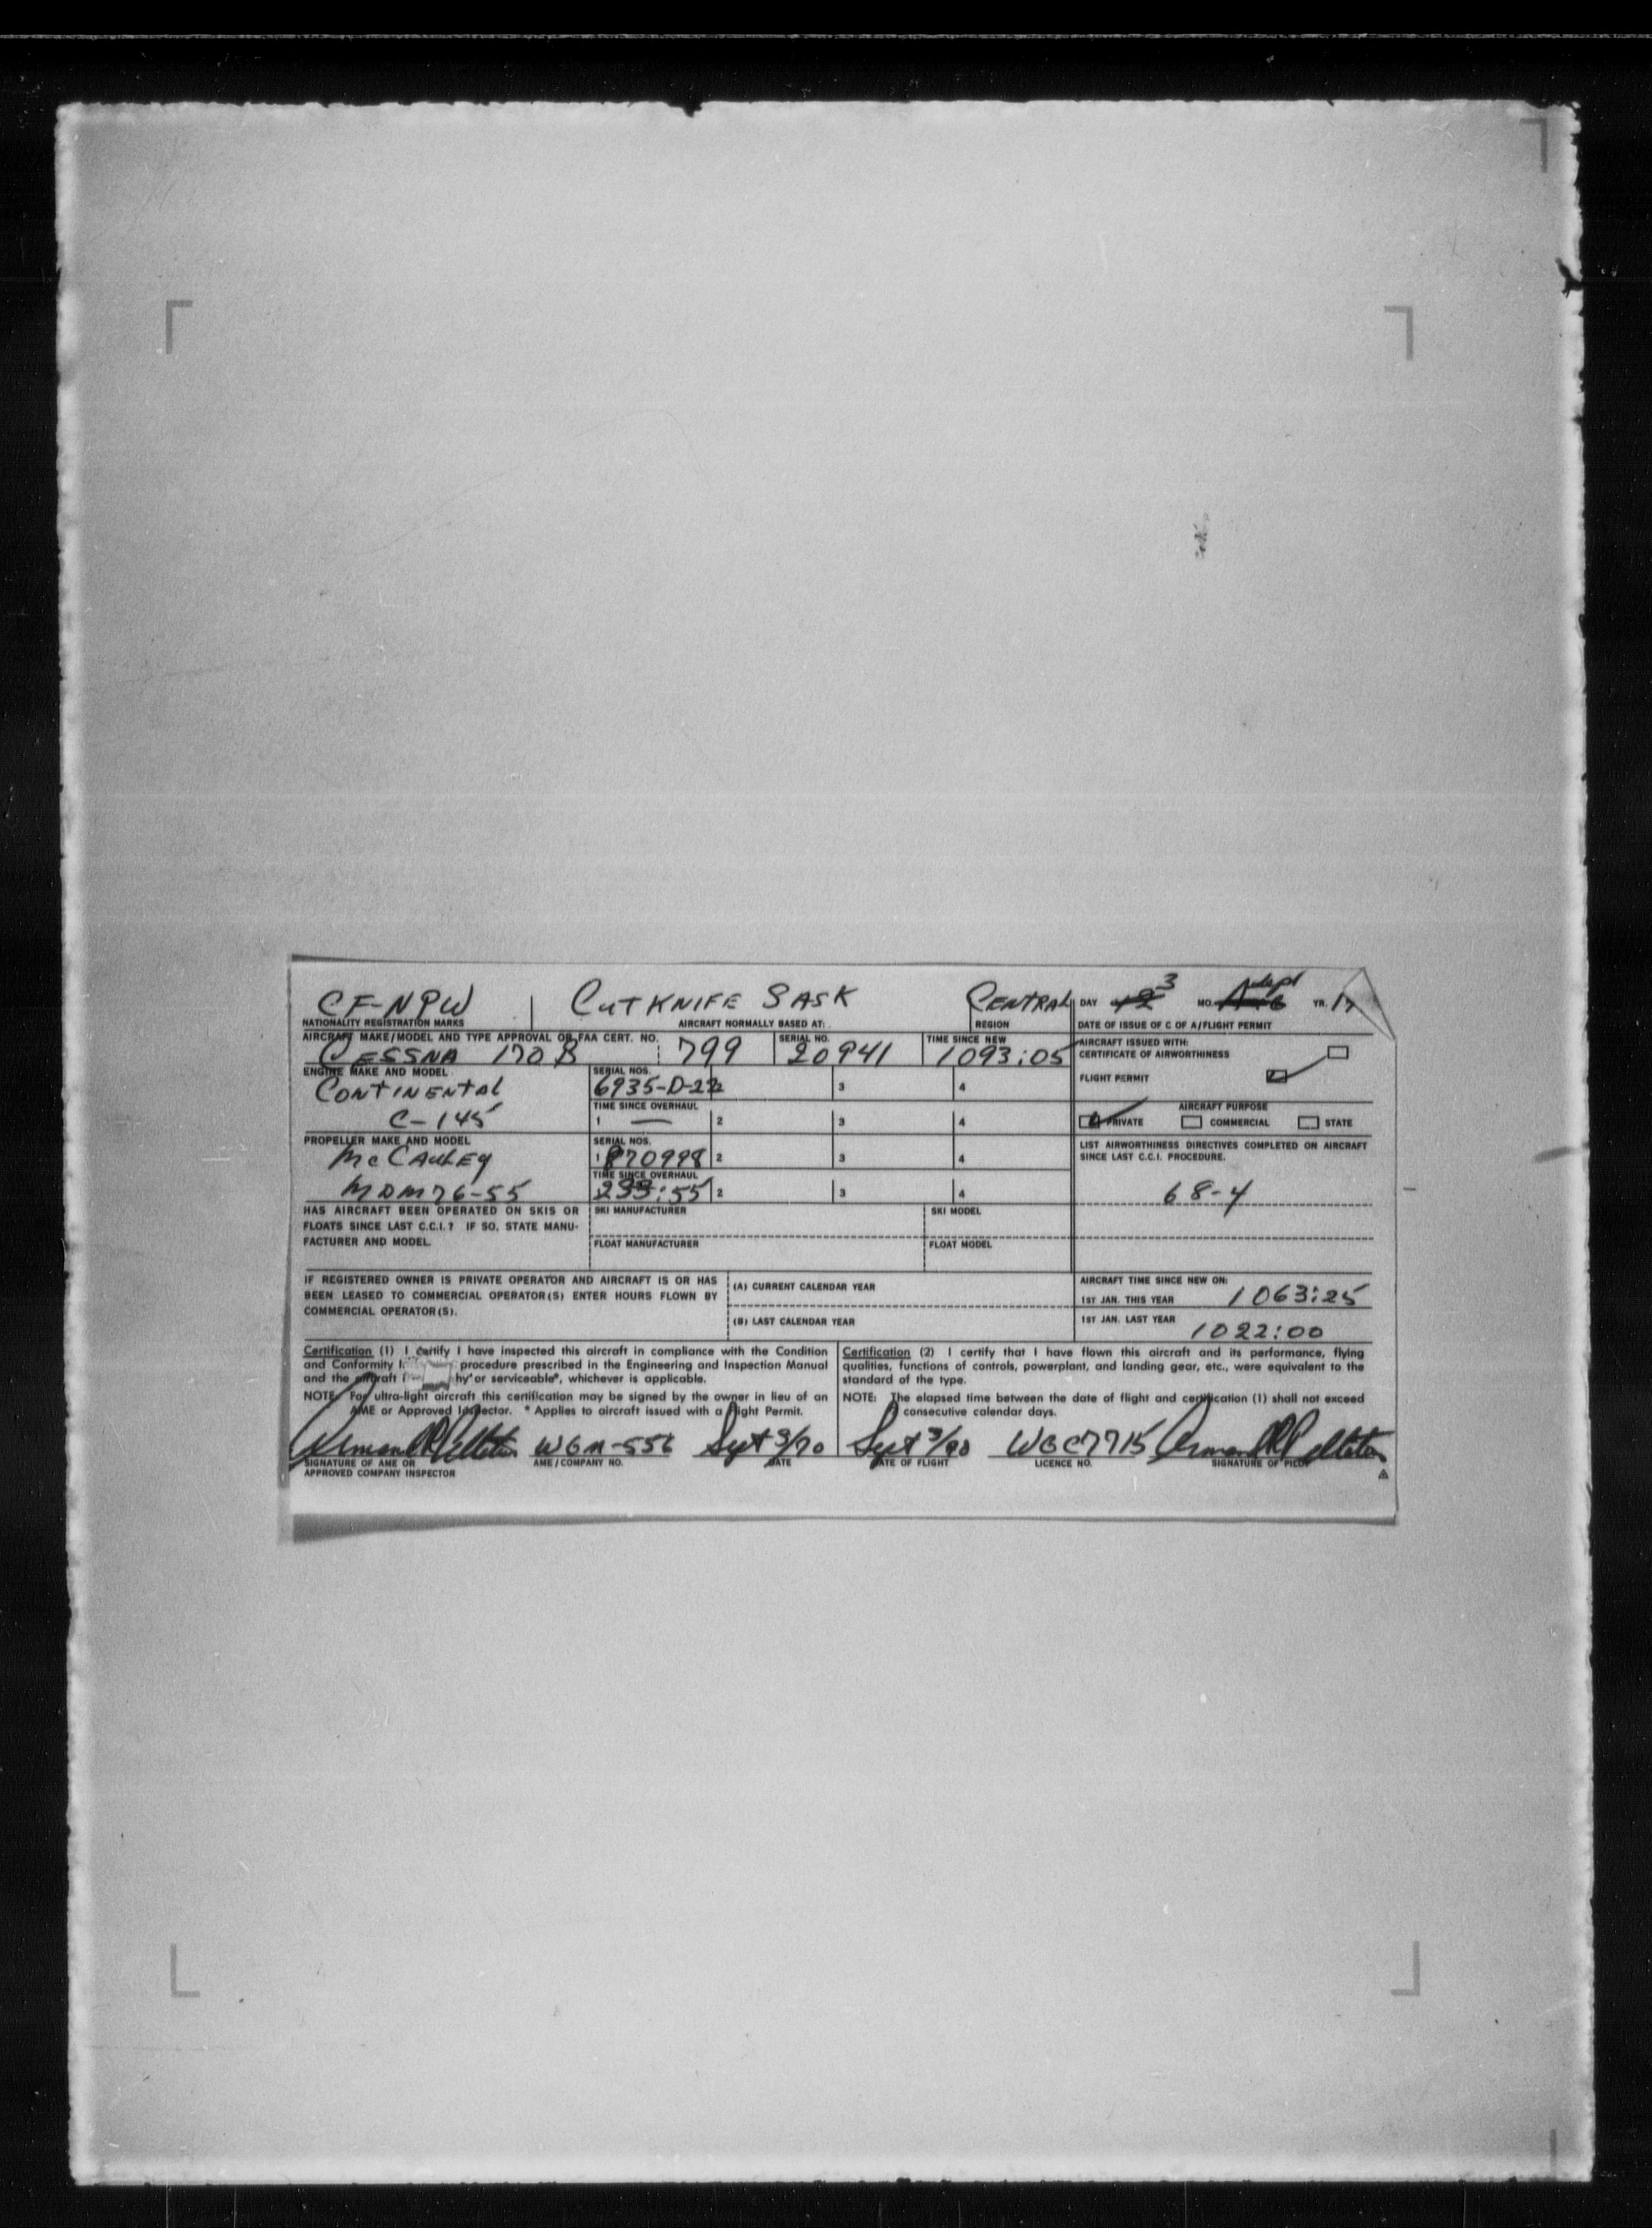 CF-NPW CUTKNIFE SASK CENTRAL DAY 3 MO. Sept YR.
NATIONALITY REGISTRATION MARKS AIRCRAFT NORMALLY BASED AT: REGION DATE OF ISSUE OF C OF A/FLIGHT PERMIT
AIRCRAFT MAKE/MODEL AND TYPE APPROVAL OR FAA CERT. NO. SERIAL NO. TIME SINCE NEW AIRCRAFT ISSUED WITH:
CESSNA 170B 799 20941 1093:05 CERTIFICATE OF AIRWORTHINESS
ENGINE MAKE AND MODEL SERIAL NOS.
CONTINENTAL 6935-D-22 3 4 FLIGHT PERMIT
TIME SINCE OVERHAUL AIRCRAFT PURPOSE
C-145 1 — 2 3 4 PRIVATE COMMERCIAL STATE
PROPELLER MAKE AND MODEL SERIAL NOS. LIST AIRWORTHINESS DIRECTIVES COMPLETED ON AIRCRAFT
McCAULEY 1 870998 2 3 4 SINCE LAST C.C.I. PROCEDURE.
TIME SINCE OVERHAUL
MDM76-55 233:55 2 3 4 68-4
HAS AIRCRAFT BEEN OPERATED ON SKIS OR SKI MANUFACTURER SKI MODEL
FLOATS SINCE LAST C.C.I.? IF SO, STATE MANU-
FACTURER AND MODEL. FLOAT MANUFACTURER FLOAT MODEL
IF REGISTERED OWNER IS PRIVATE OPERATOR AND AIRCRAFT IS OR HAS (A) CURRENT CALENDAR YEAR AIRCRAFT TIME SINCE NEW ON:
BEEN LEASED TO COMMERCIAL OPERATOR(S) ENTER HOURS FLOWN BY 1ST JAN. THIS YEAR 1063:25
COMMERCIAL OPERATOR(S). (B) LAST CALENDAR YEAR 1ST JAN. LAST YEAR 1022:00
Certification (1) I certify I have inspected this aircraft in compliance with the Condition Certification (2) I certify that I have flown this aircraft and its performance, flying
and Conformity procedure prescribed in the Engineering and Inspection Manual qualities, functions of controls, powerplant, and landing gear, etc., were equivalent to the
and the aircraft or serviceable*, whichever is applicable. standard of the type.
NOTE: For ultra-light aircraft this certification may be signed by the owner in lieu of an NOTE: The elapsed time between the date of flight and certification (1) shall not exceed
AME or Approved Inspector. * Applies to aircraft issued with a Flight Permit. consecutive calendar days.
WGM-556 Sept 3/70 Sept 3/70 WGC7715
SIGNATURE OF AME OR AME/COMPANY NO. DATE DATE OF FLIGHT LICENCE NO. SIGNATURE OF PILOT
APPROVED COMPANY INSPECTOR